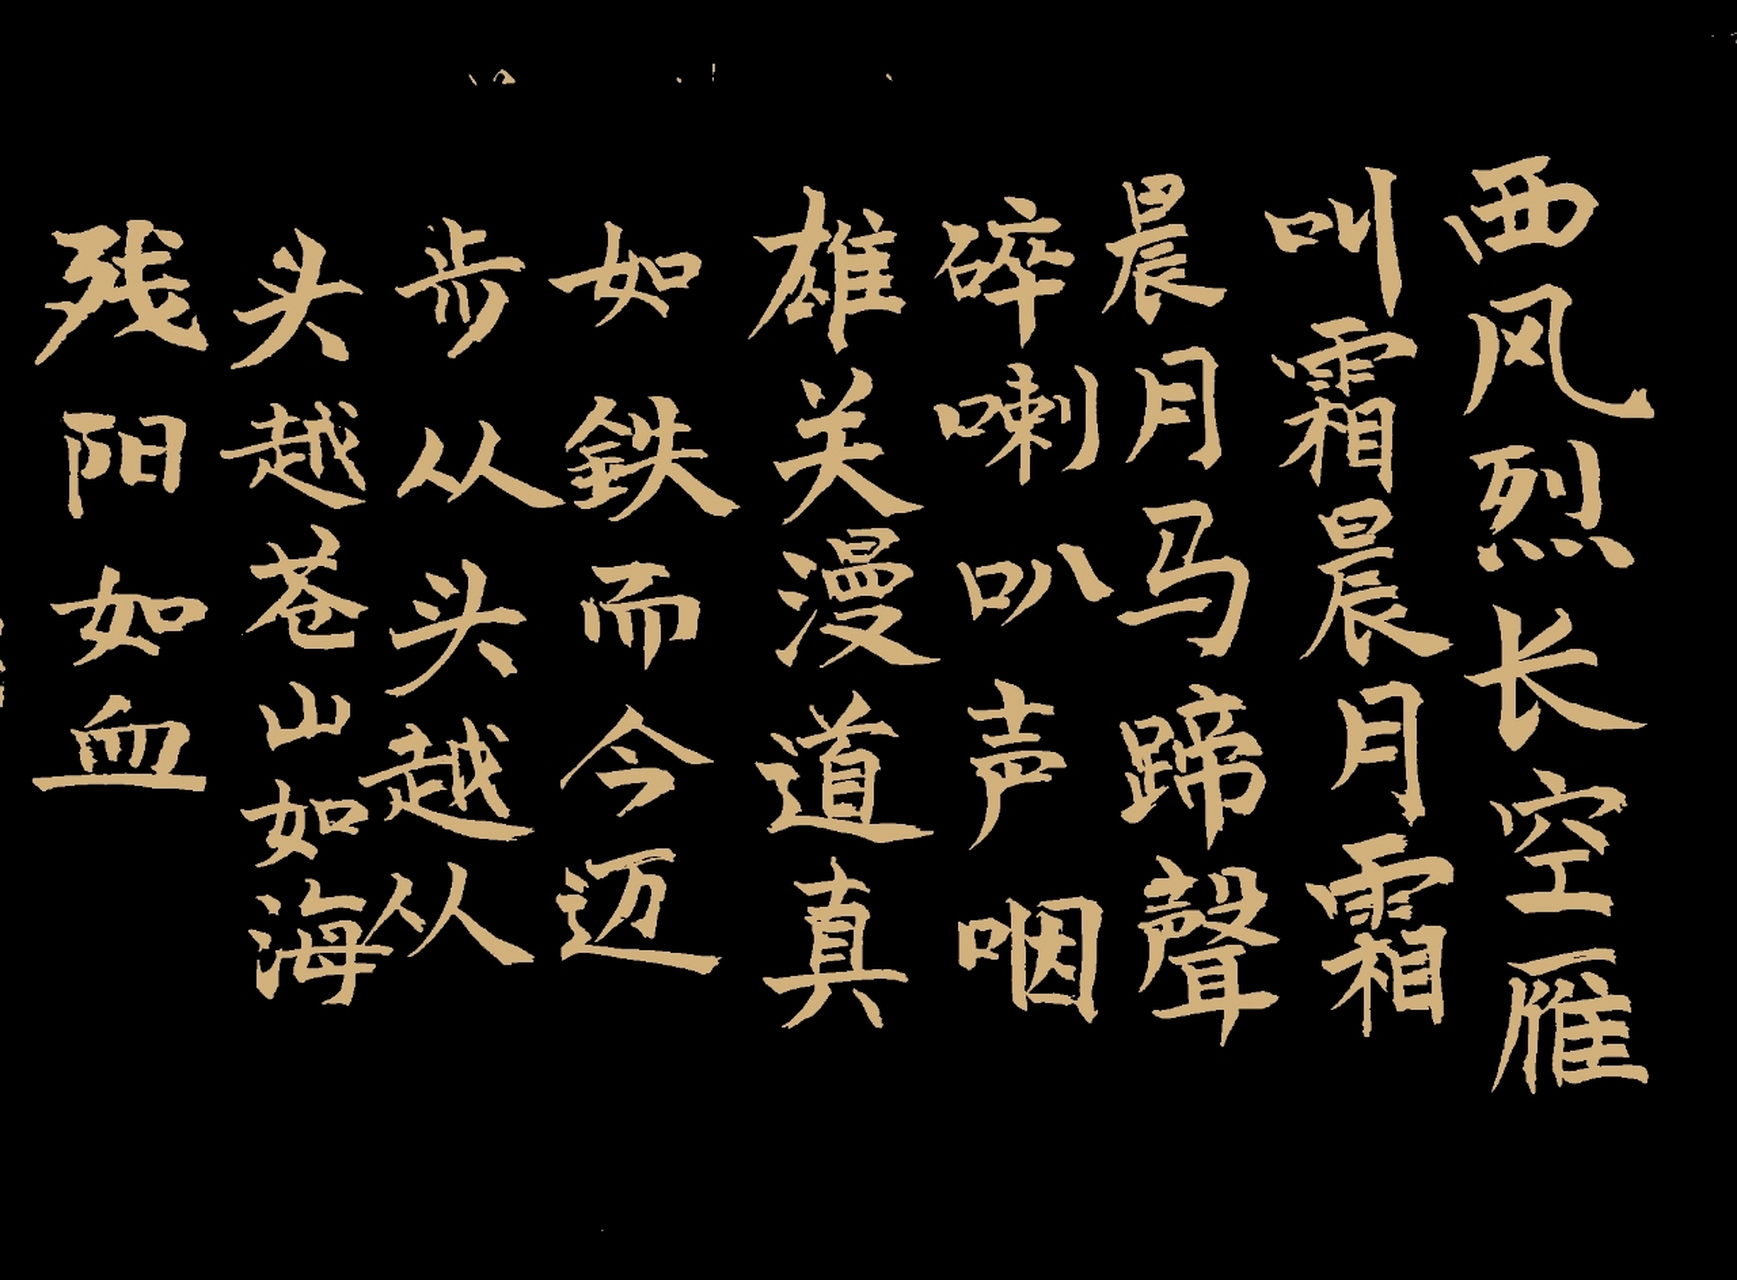 西风烈长空雁
叫霜晨月霜
晨月马蹄聲
碎喇叭声咽
雄关漫道真
如鉄而今迈
步从头越从
头越苍山如海
残阳如血